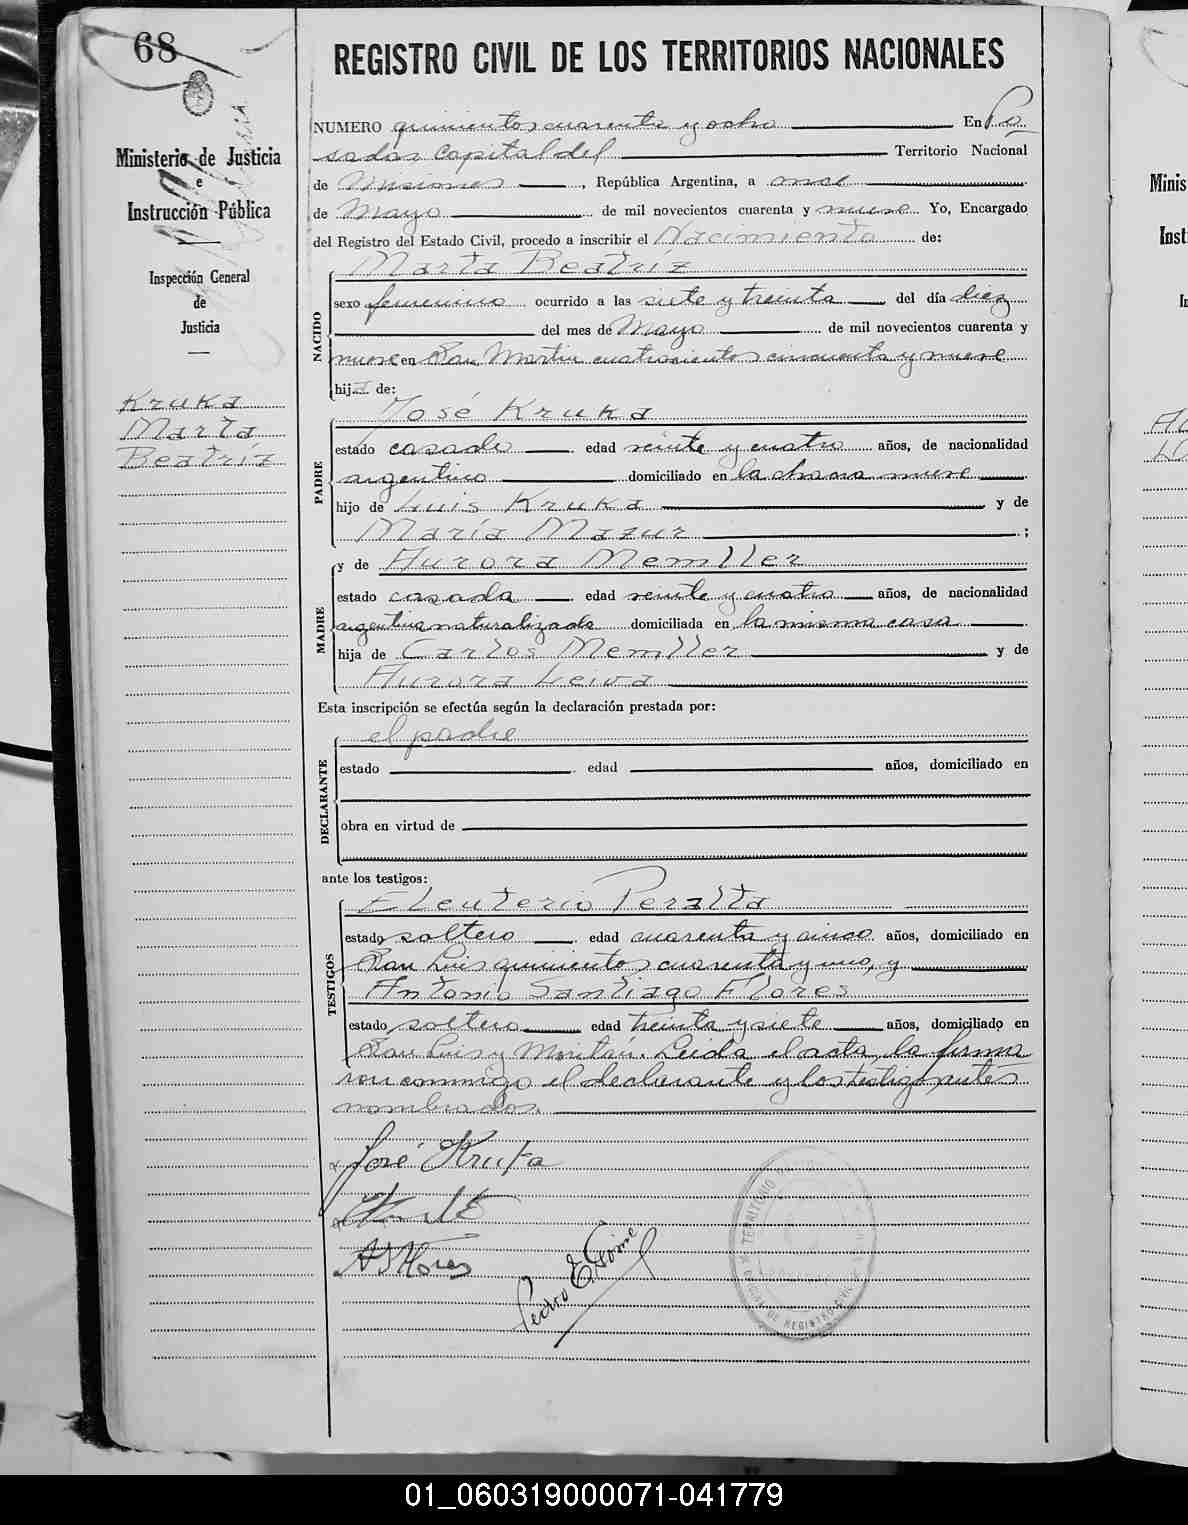 68
Ministerio de Justicia
e
Instrucción Pública
Inspección General
de
Justicia
Kruka
Marta
Beatríz
REGISTRO CIVIL DE LOS TERRITORIOS NACIONALES
NUMERO quinientos cuarenta y ocho En Po
sadas Capital del Territorio Nacional
de Misiones, República Argentina, a once
de Mayo de mil novecientos cuarenta y nueve Yo, Encargado
del Registro del Estado Civil, procedo a inscribir el Nacimiento de:
Marta Beatríz
NACIDO
sexo femenino ocurrido a las siete y treinta del día diez
del mes de Mayo de mil novecientos cuarenta y
nueve en San Martin cuatrocientos cincuenta y nueve
hija de:
José Kruka
PADRE
estado casado edad veinte y cuatro años, de nacionalidad
argentino domiciliado en la chacra nueve
hijo de Luis Kruka y de
María Mazur;
y de Aurora Memller
MADRE
estado casada edad veinte y cuatro años, de nacionalidad
argentina naturalizada domiciliada en la misma casa
hija de Carlos Memller y de
Aurora Leiva
Esta inscripción se efectúa según la declaración prestada por:
el padre
DECLARANTE
estado edad años, domiciliado en
obra en virtud de
ante los testigos:
Eleuterio Peralta
TESTIGOS
estado soltero edad cuarenta y cinco años, domiciliado en
San Luis quinientos cuarenta y uno, y
Antonio Santiago Flores
estado soltero edad treinta y siete años, domiciliado en
San Luis y Moritán. Leida el acta, la firma
ron conmigo el declarante y los testigos antes
nombrados.
José Kruka
A S Flores
Pedro E.
TERRITORIO
REGISTRO CIVIL
Minis
Inst
01_060319000071-041779